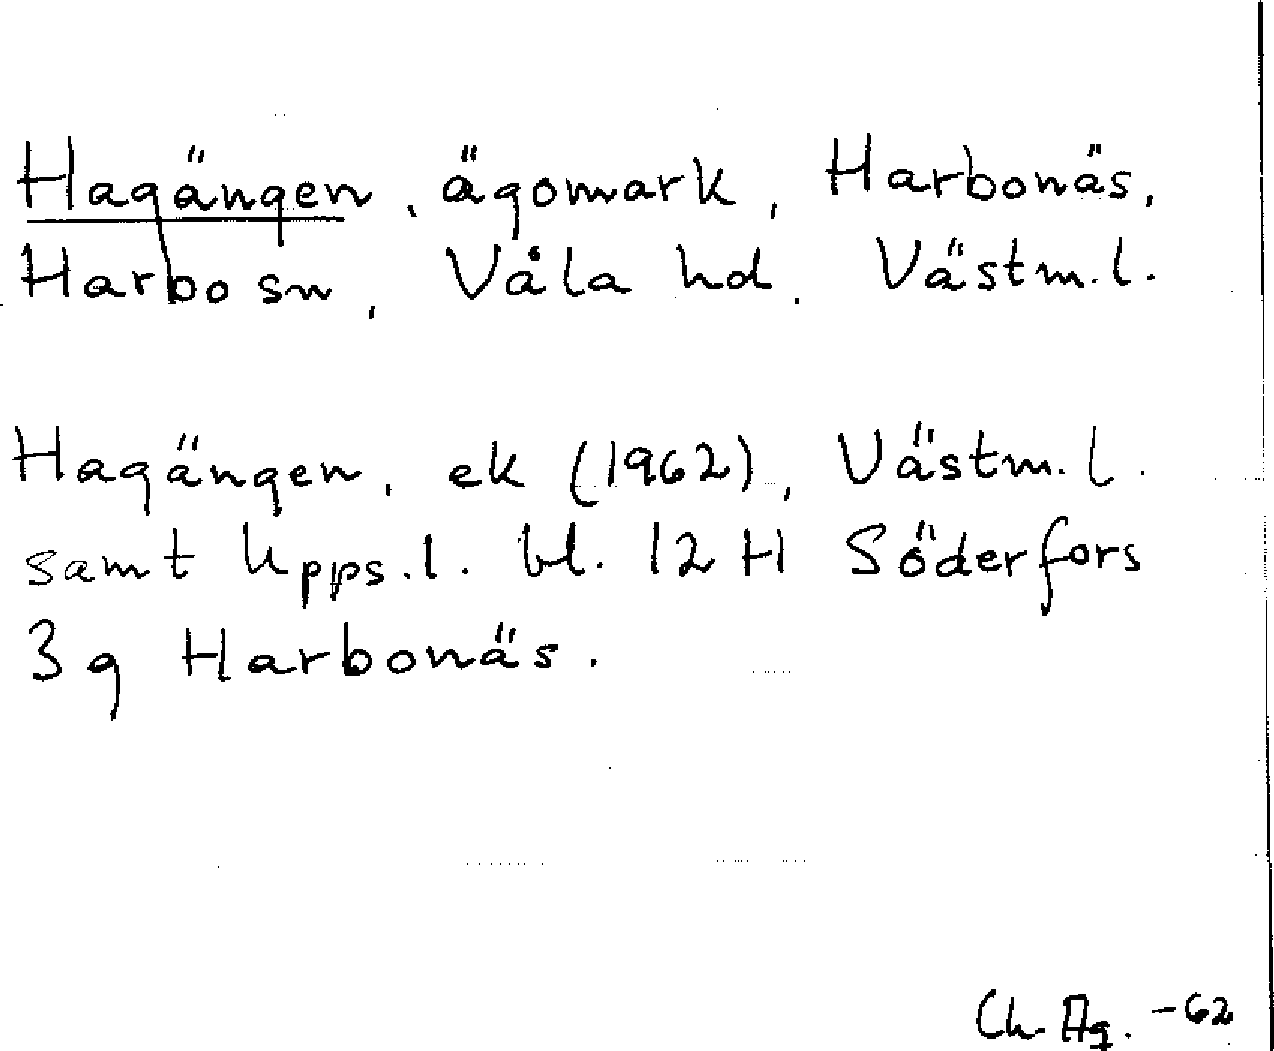 Hagängen, ägomark, Harbonäs,
Harbo sn, Våla hd, Västm.l.
Hagängen, ek (1962), Västm.l.
samt Upps.l. bl. 12 H Söderfors
3 g Harbonäs.
Ch. Ag. -62